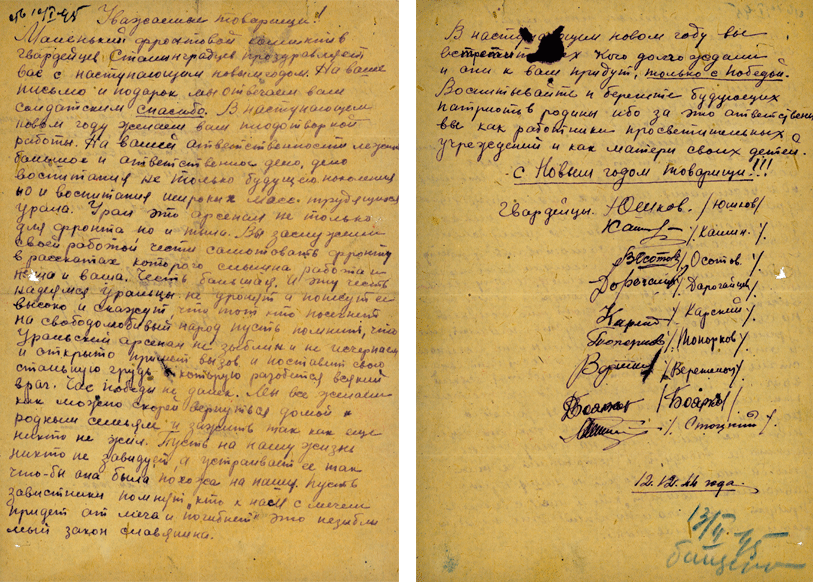 Уважаемые товарищи!
Маленький фронтовой коллектив
гвардейцев Сталинградцев поздравляет
вас с наступающим новым годом. На ваше
письмо и подарок мы отвечаем вам
солдатским спасибо. В наступающем
новом году желаем вам плодотворной
работы. На вашей ответственности лежит
большое и ответственное дело, дело
воспитания не только будущего поколения
но и воспитания широких масс трудящихся
урала. Урал это арсенал не только
для фронта но и тыла. Вы заслужили
своей работой чести салютовать фронту
в раскатах которого слышна работа и
наша и ваша. Честь большая. И эту честь
надеемся уральцы не уронят и понесут её
высоко и скажут, что тот кто посягнет
на свободолюбивый народ пусть помнит, что
Уральский арсенал не зыблем и не исчерпаем
и открыто примет вызов и поставит свою
стальную грудь о которую разобьется всякий
враг. Час победы не далек. Мы все желаем
как можно скорей вернуться домой к
родным семьям и зажить так как еще
никто не жил. Пусть на нашу жизнь
никто не завидует, а устраивает ее так
что-бы она была похожа на нашу. Пусть
завистники помнут "кто к нам с мечем
придет от меча и погибнет" это незыбле
мый закон славянина.
В наступающем новом году вы
встретите кого долго ждали
и они к вам придут, только с победой.
Воспитывайте и берегите будующих
патриотов родины ибо за это ответственны
вы как работники просветительных
учреждений и как матери своих детей.
С Новым годом товарищи!!!
Гвардейцы: Юшков. /Юшков/
/Калин./
Осотов /Осотов/
/Дарогайцев/
/Карский/
/Топорков/
/Боярко/
/Стоцкий/.
12.12.44 года.
13/II 45